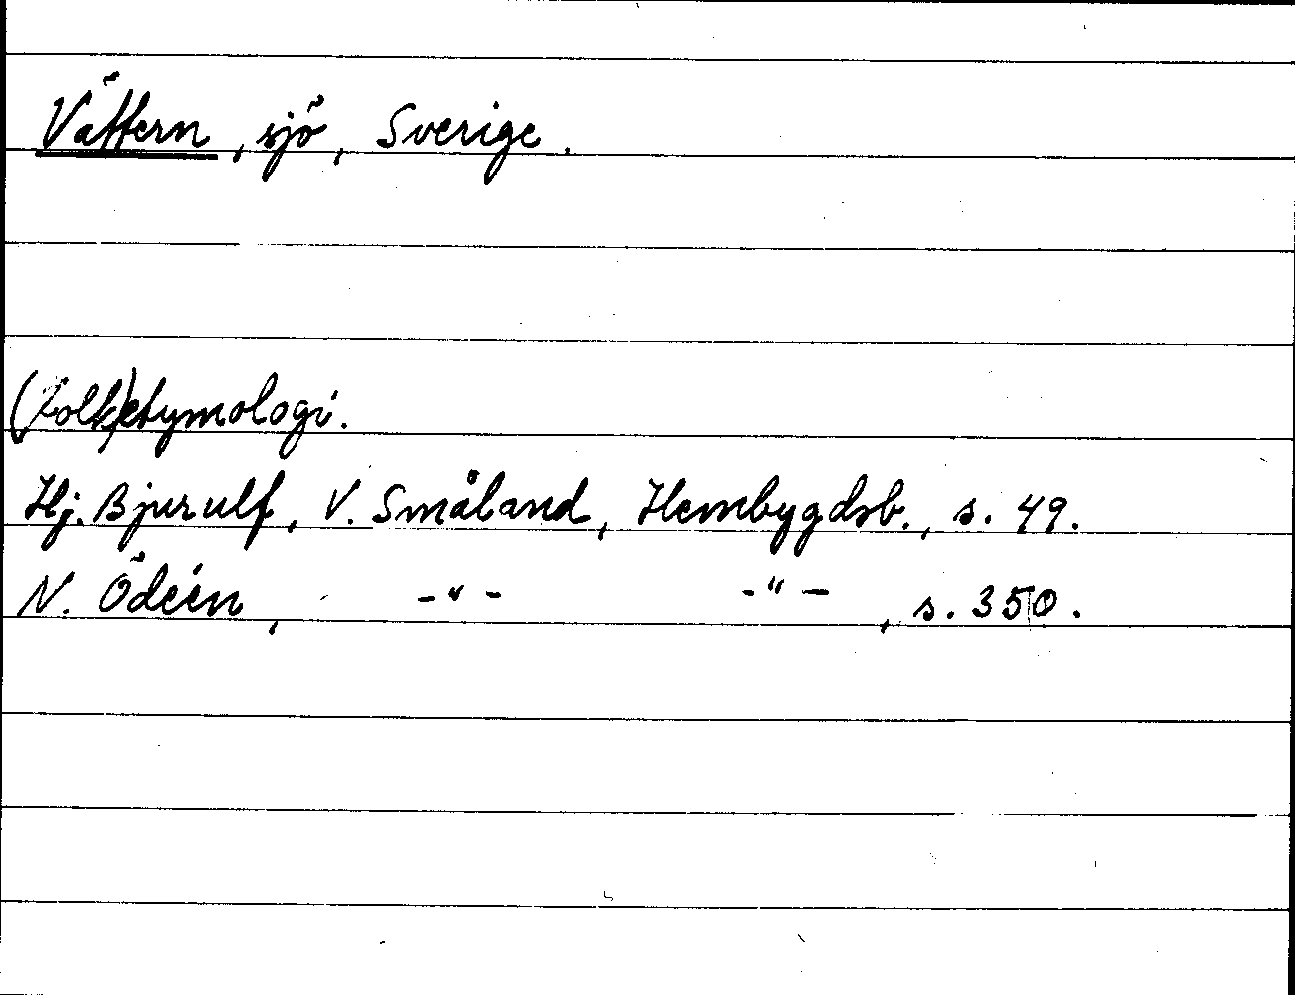 Vättern, sjö, Sverige.
(Folk)etymologi.
Hj. Bjurulf, V. Småland, Hembygdsb., s. 49.
N. Ödéen, -"- -"-, s. 350.